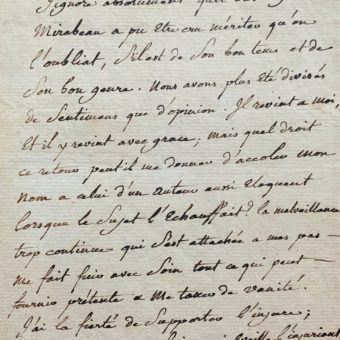 J'ignore absolument quel
Mirabeau a pu être cru mériter qu'on
l'oubliat, s'il est de son bon tems et de
son bon genre. Nous avons plus été divisés
de sentimens que d'opinion. Il revient a moi,
Et il y revient avec grace, mais quel droit
ce retour peut il me donner d'accoler mon
nom a celui d'un auteur aussi eloquent
lorsque le sujet l'Echauffait? la malveillance
trop continue qui s'est attachée a mes pas
me fait fuir avec soin tout ce qui peut
fournir prétexte a me taxer de vanité.
J'ai la fierté de supporter l'injure;
l'injuriant